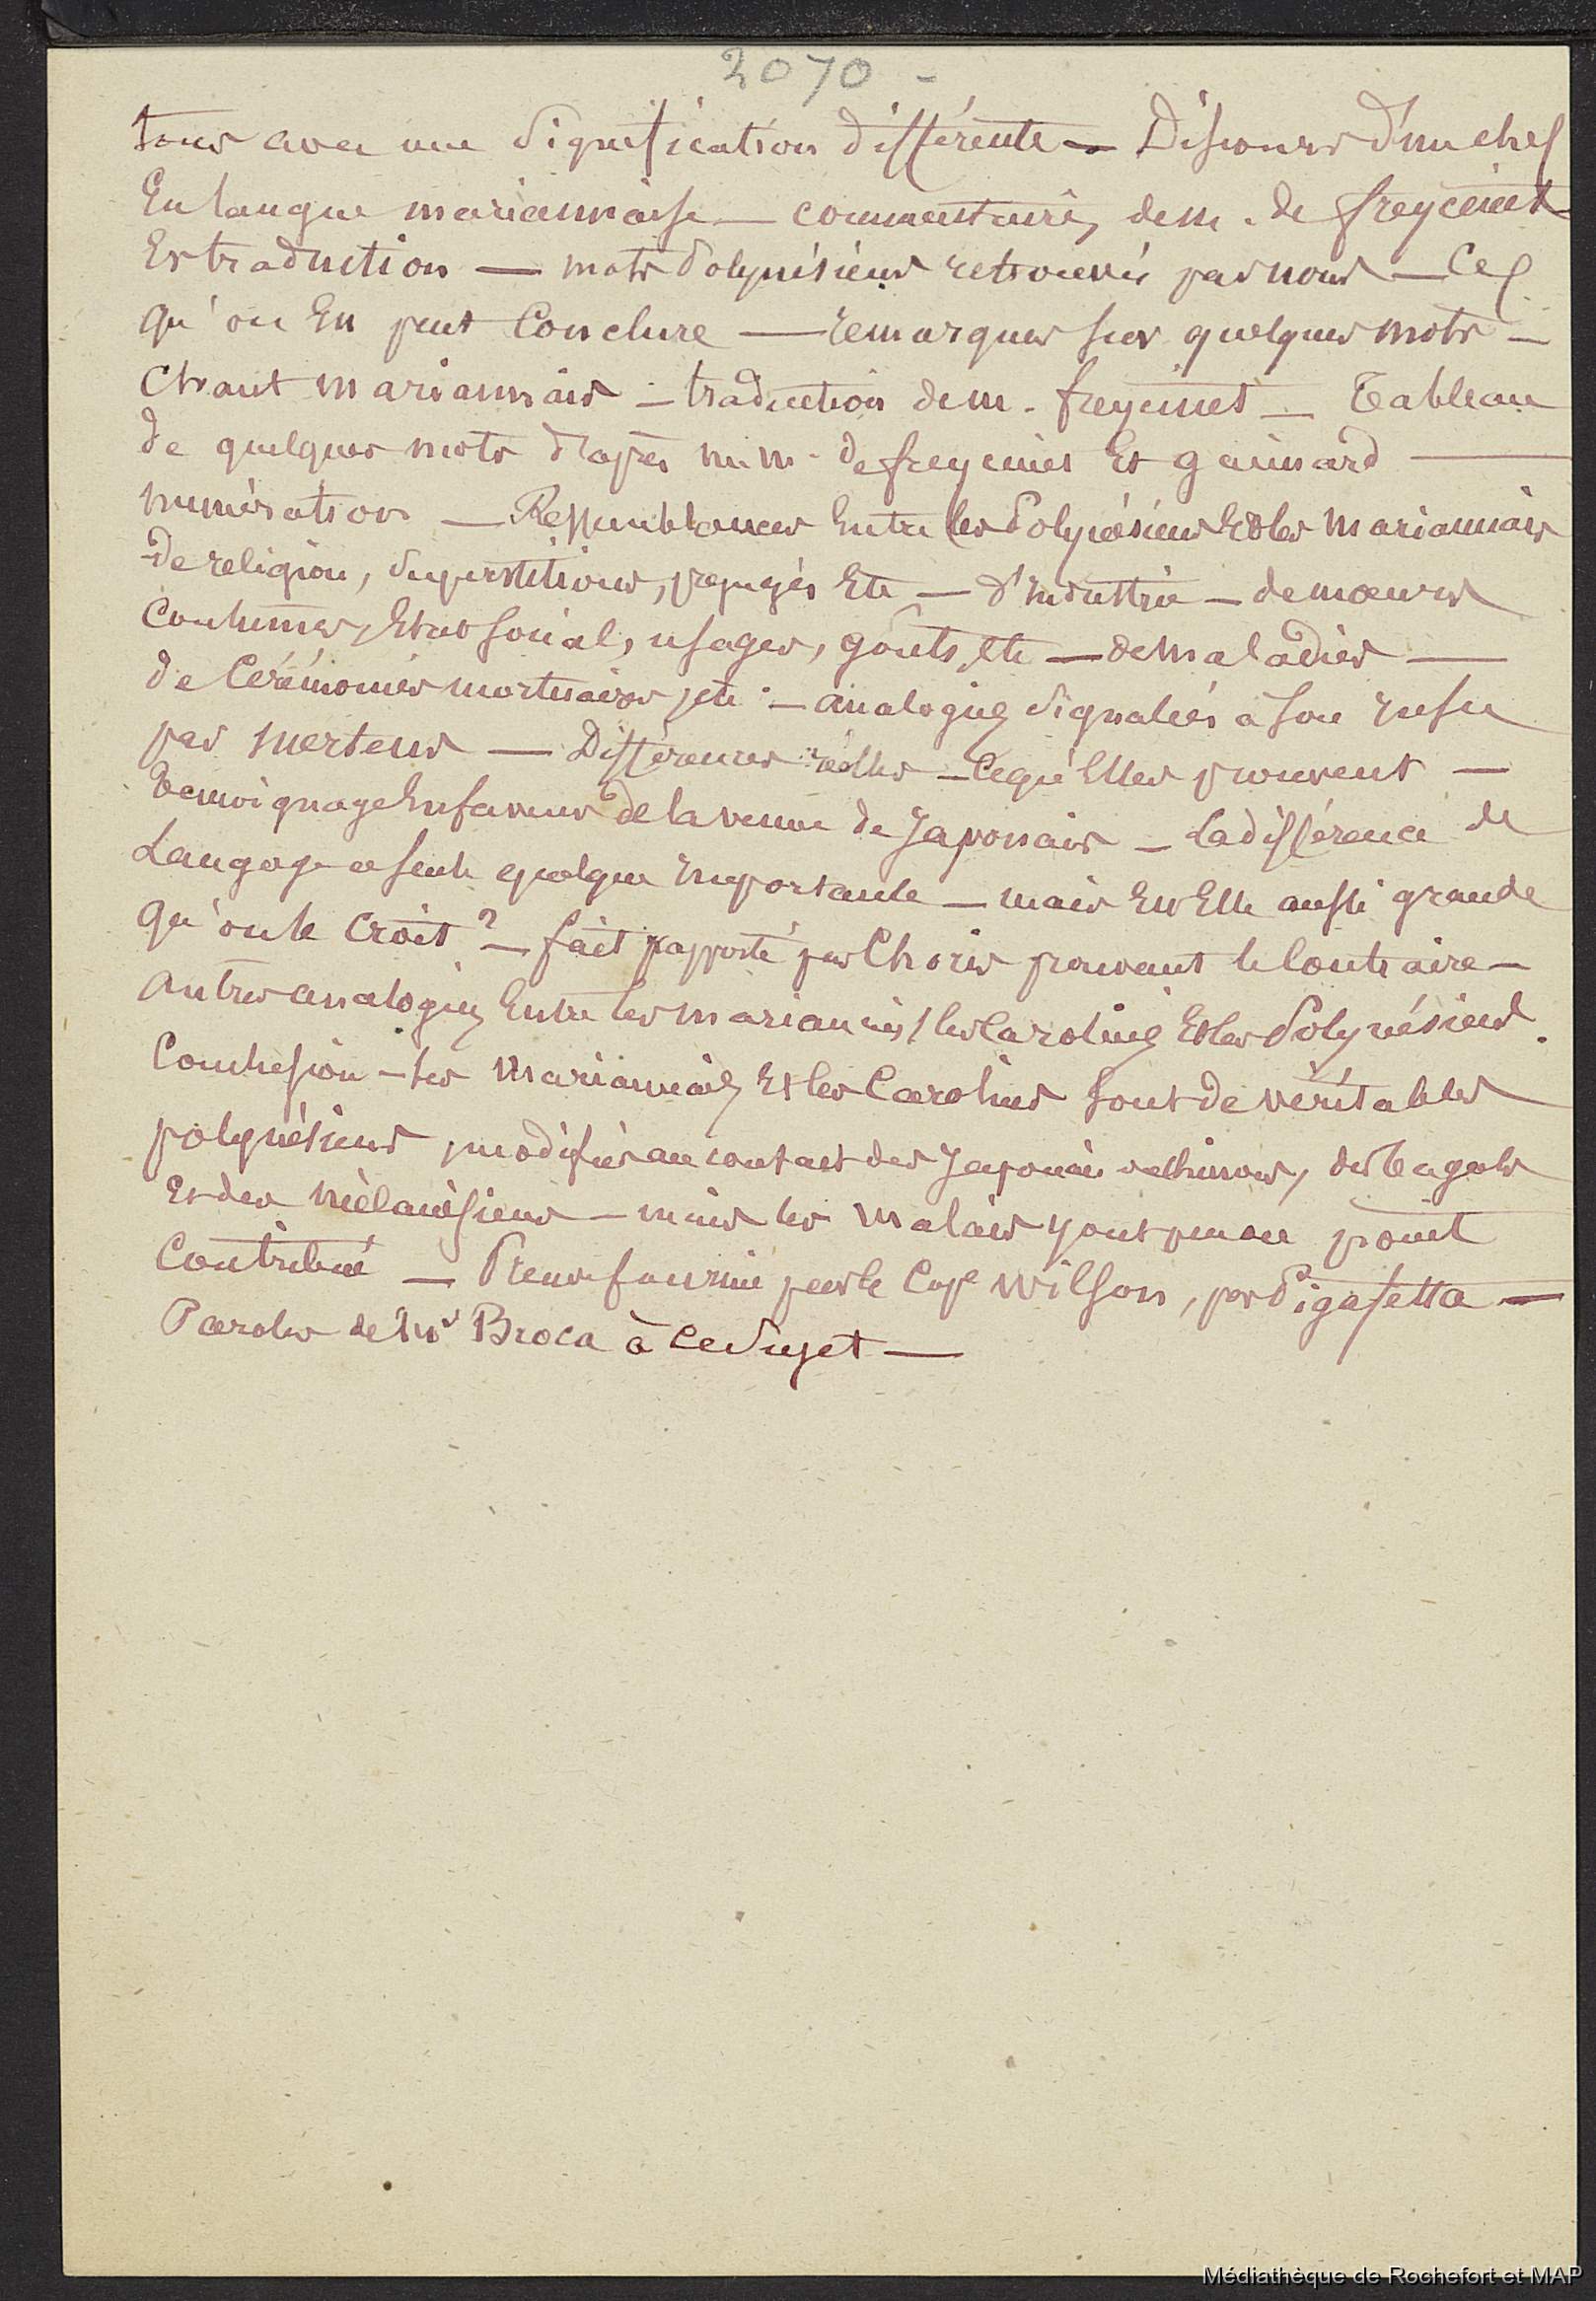 2070 -
tous avec une signification différente — Discours d'un chef
En langue mariannaise — commentaires de m. de freycinet
Et traduction — mots Polynésiens retrouvés par nous — Ce
qu'on En peut Conclure — remarques sur quelques mots —
Chant mariannais — traduction de m. freycinet — Tableau
de quelques mots d'après m.m. de freycinet Et gaimard —
numération — Ressemblances Entre les Polynésiens Et les mariannais
de religion, superstitions, préjugés Etc — d'industrie — de mœurs
Coutumes, Etat social, usages, goûts, Etc — de maladies —
de Cérémonies mortuaires, etc. — analogies signalées à son insu
par mertens — Différences réelles — Ce qu'Elles prouvent —
Témoignage En faveur de la venue de Japonais — La différence de
Langage a seule quelque importance — mais Est Elle aussi grande
qu'on le Croit ? — fait rapporté par Choris prouvant le Contraire —
Autres analogies Entre les mariannais, les Carolins Et les Polynésiens.
Conclusion — les mariannais Et les Carolins sont de véritables
polynésiens modifiés au contact des Japonais, des Tagals
Et des mélanésiens — mais les malais y ont peu ou point
Contribué — Preuve fournie par le Cap^e Wilson, par Pigafetta —
Paroles de Mr Broca à Ce sujet —
Médiathèque de Rochefort et MAP